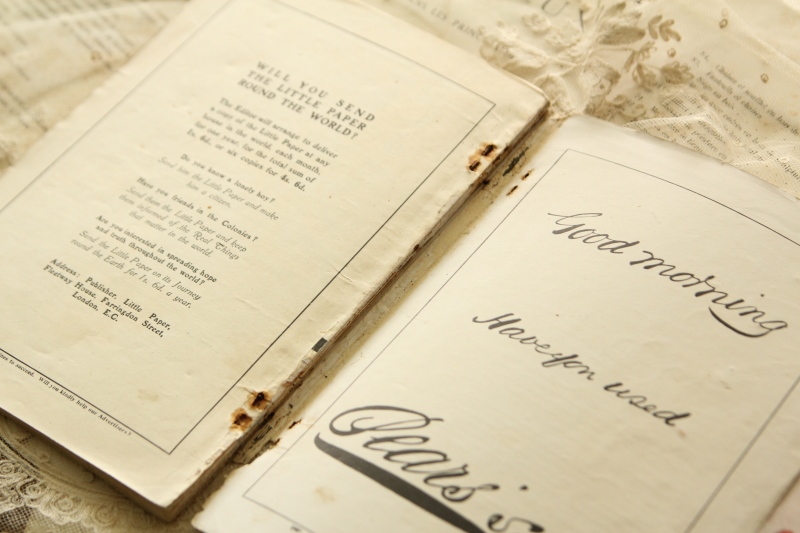 WILL YOU SEND
THE LITTLE PAPER
ROUND THE WORLD?
The Editor will arrange to deliver
a copy of the Little Paper at any
house in the world, each month,
for one year for the total sum of
1s. 6d., or six copies for 4s. 6d.
Do you know a lonely boy?
Send him the Little Paper and make
him a citizen.
Have you friends in the Colonies?
Send them the Little Paper and keep
them informed of the Real Things
that matter in the world.
Are you interested in spreading hope
and truth throughout the world?
Send the Little Paper on its Journey
round the Earth for 1s. 6d. a year.
Address: Publisher, Little Paper,
Fleetway House, Farringdon Street,
London, E.C.
to succeed. Will you kindly help our Advertisers?
Good morning
Have you used
Pears's